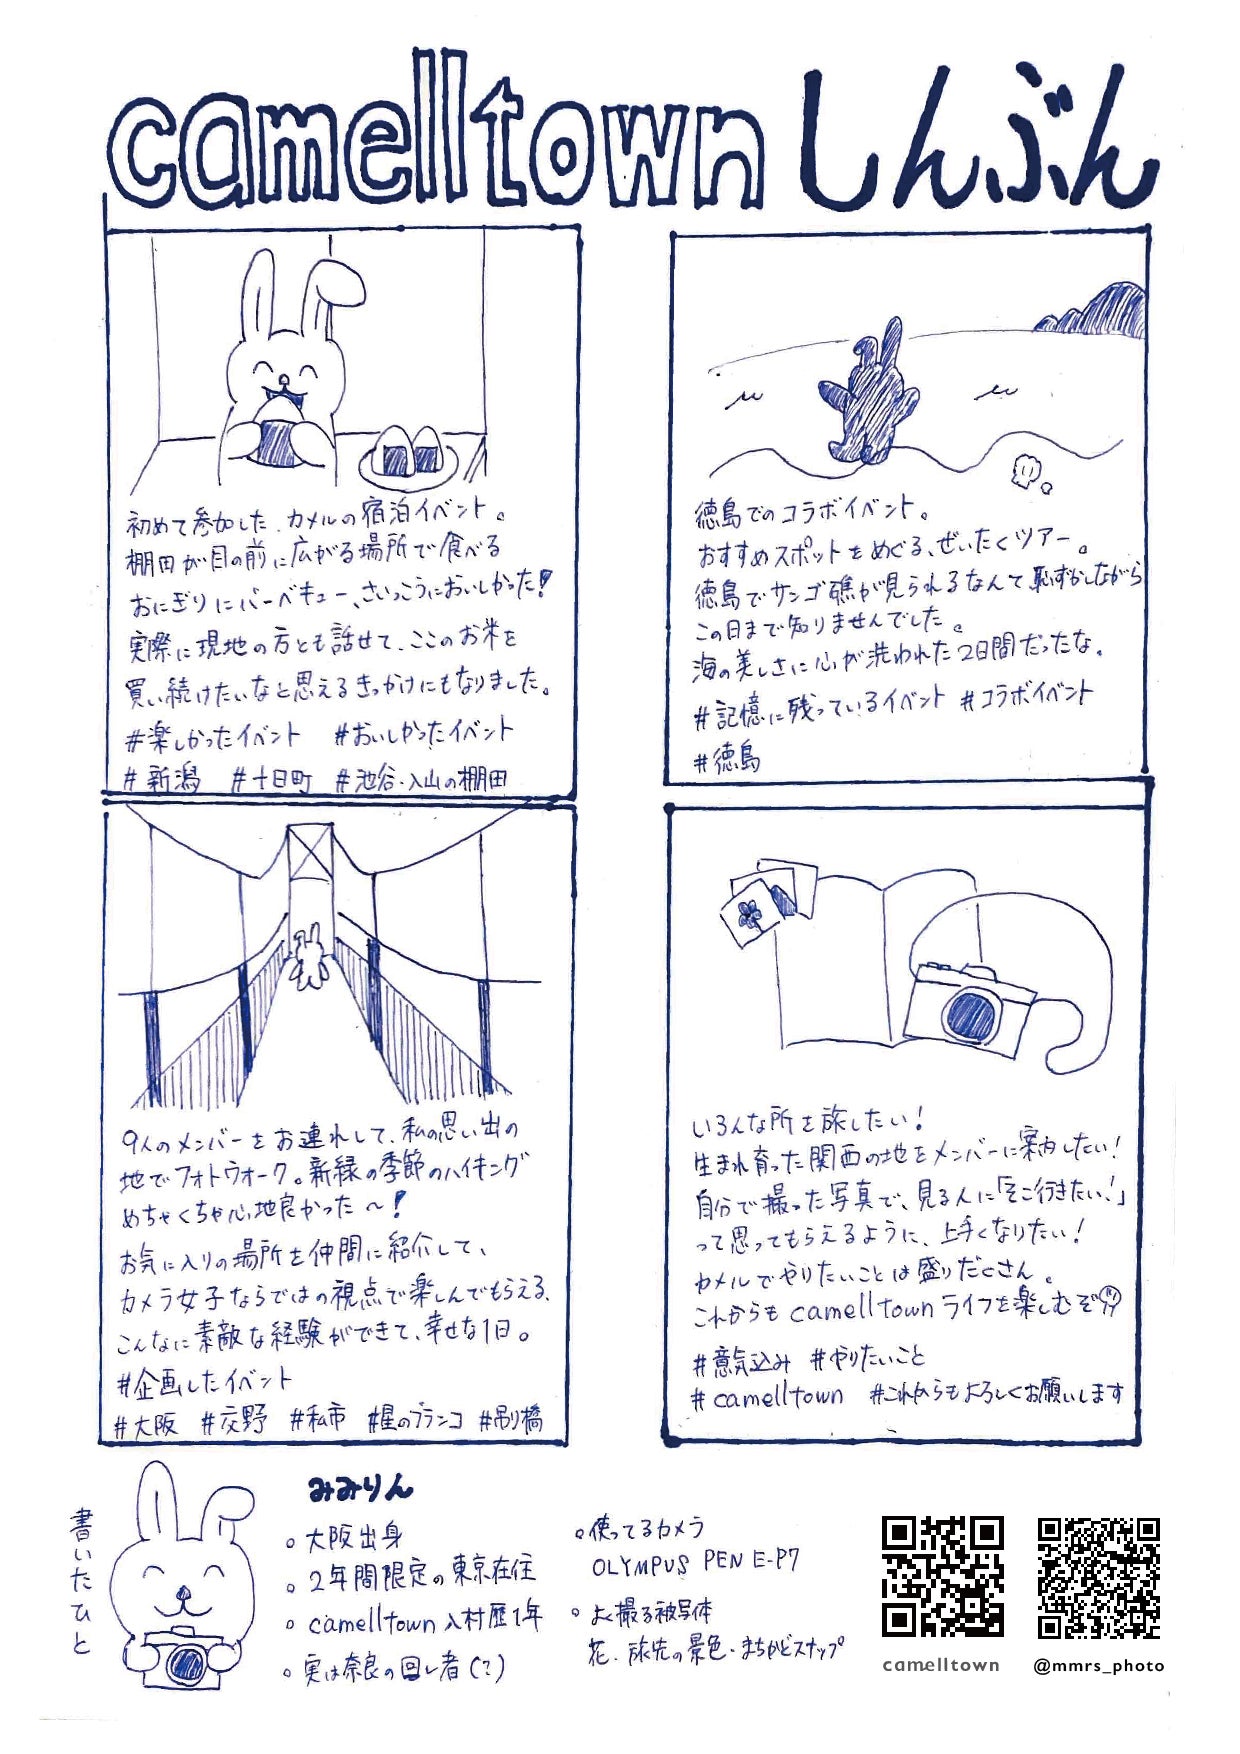 camelltown しんぶん
初めて参加した、カメルの宿泊イベント。
棚田が目の前に広がる場所で食べる
おにぎりにバーベキュー、さいっこうにおいしかった!
実際に現地の方とも話せて、ここのお米を
買い続けたいなと思えるきっかけにもなりました。
#楽しかったイベント #おいしかったイベント
#新潟 #十日町 #池谷・入山の棚田
徳島でのコラボイベント。
おすすめスポットをめぐる、ぜいたくツアー。
徳島でサンゴ礁が見られるなんて恥ずかしながら
この日まで知りませんでした。
海の美しさに心が洗われた2日間だったな。
#記憶に残っているイベント #コラボイベント
#徳島
9人のメンバーをお連れして、私の思い出の
地でフォトウォーク。新緑の季節のハイキング
めちゃくちゃ心地良かった〜!
お気に入りの場所を仲間に紹介して、
カメラ女子ならではの視点で楽しんでもらえる、
こんなに素敵な経験ができて、幸せな1日。
#企画したイベント
#大阪 #交野 #私市 #星のブランコ #吊り橋
いろんな所を旅したい!
生まれ育った関西の地をメンバーに案内したい!
自分で撮った写真で、見る人に「そこ行きたい!」
って思ってもらえるように、上手くなりたい!
カメルでやりたいことは盛りだくさん。
これからもcamelltownライフを楽しむぞ
#意気込み #やりたいこと
#camelltown #これからもよろしくお願いします
書いたひと
みみりん
○大阪出身
○2年間限定の東京在住
○camelltown入村歴1年
○実は奈良の回し者(?)
○使ってるカメラ
OLYMPUS PEN E-P7
○よく撮る被写体
花、旅先の景色・まちかどスナップ
camelltown
@mmrs_photo